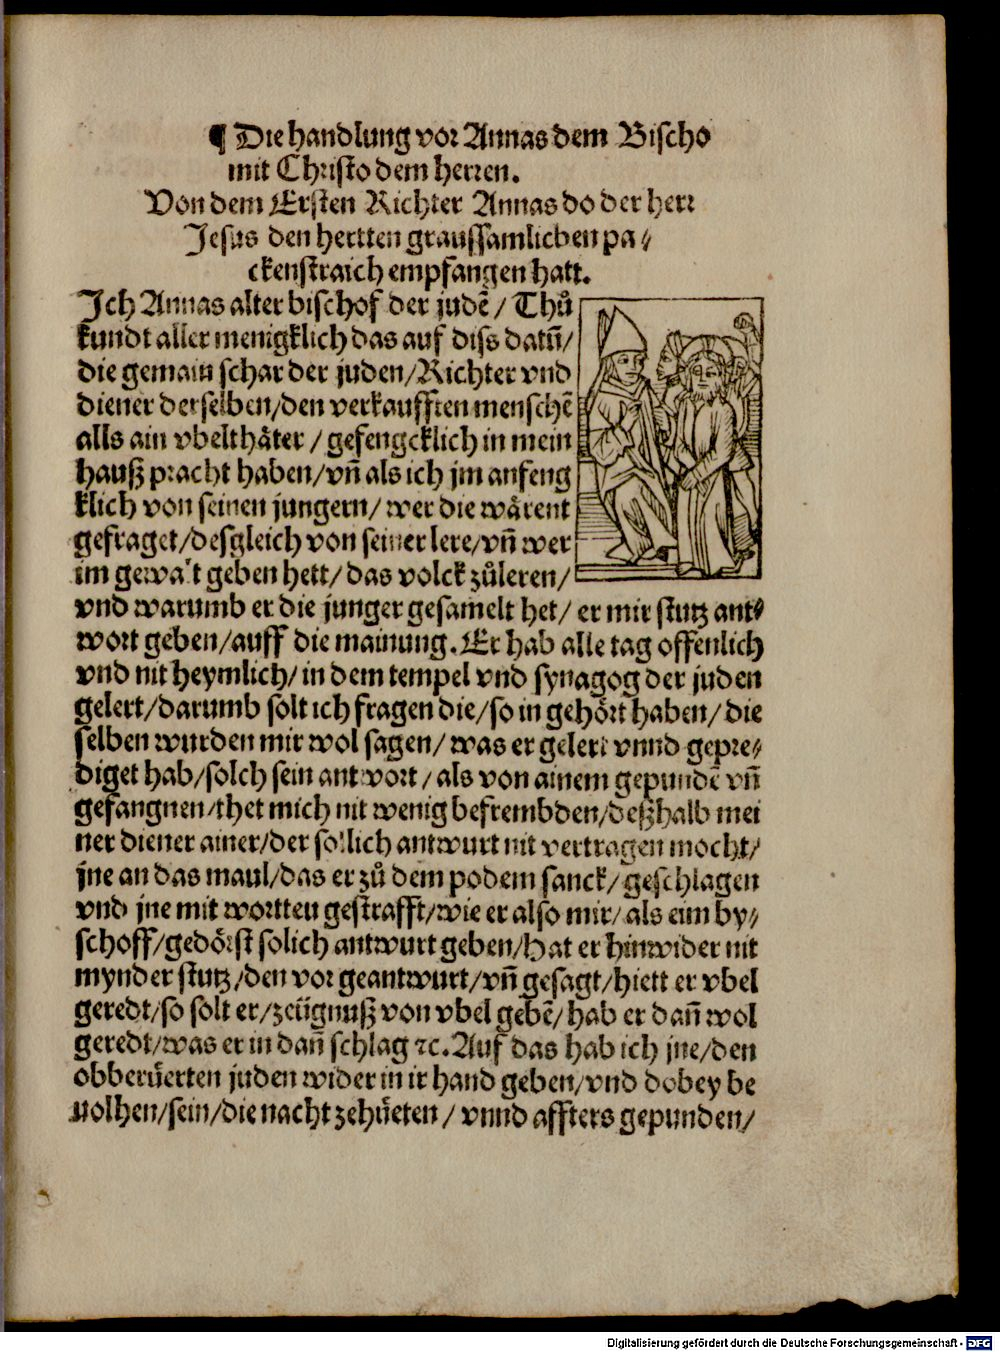 ¶ Die handlung vor Annas dem Bischo
mit Christo dem herren.
Von dem Ersten Richter Annas do der herr
Jesus den hertten graussamlichen pa⸗
ckenstraich empfangen hatt.
Ich Annas alter bischof der judē / Thů
kundt aller menigklich das auf diss datū/
die gemain schar der juden/Richter vnd
diener derselben/den verkaufften menschē
alls ain vbelthäter / gefengcklich in mein
hauß pracht haben/vñ als ich jm anfeng
klich von seinen jungern/ wer die wärent
gefraget/desgleich von seiner lere/vñ wer
im gewalt geben hett/ das volck zůleren/
vnd warumb er die junger gesamelt het/ er mir stutz ant⸗
wort geben/auff die mainung. Er hab alle tag offenlich
vnd nit heymlich/ in dem tempel vnd synagog der juden
gelert/darumb solt ich fragen die/so in gehört haben/ die
selben wurden mir wol sagen/ was er gelert vnnd gepre⸗
diget hab/solch sein antwort / als von ainem gepundē vñ
gefangnen/thet mich nit wenig befrembden/deßhalb mei
ner diener ainer/der sollich antwurt nit vertragen mocht/
jne an das maul/das er zů dem podem sanck/ geschlagen
vnd jne mit wortten gestrafft/wie er also mir/ als eim by⸗
schoff/gedörst solich antwurt geben/Hat er hinwider nit
mynder stutz/den vor geantwurt/vñ gesagt/hiett er vbel
geredt/so solt er/zeügnuß von vbel gebē/ hab er dañ wol
geredt/was er in dañ schlag ⁊c. Auf das hab ich jne/den
obberůerten juden wider in ir hand geben/vnd dobey be
uolhen/sein/die nacht zehůeten / vnnd affters gepunden/
Digitalisierung gefördert durch die Deutsche Forschungsgemeinschaft - DFG